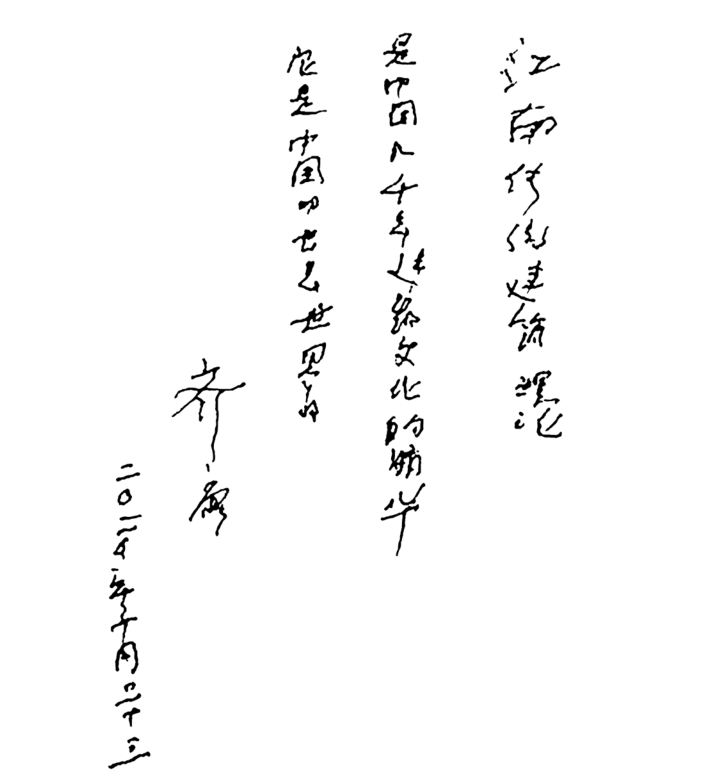 江南传统建筑理论
是中国几千年建筑文化的精华
它是中国的也是世界的
齐康
二〇一年十月二十三